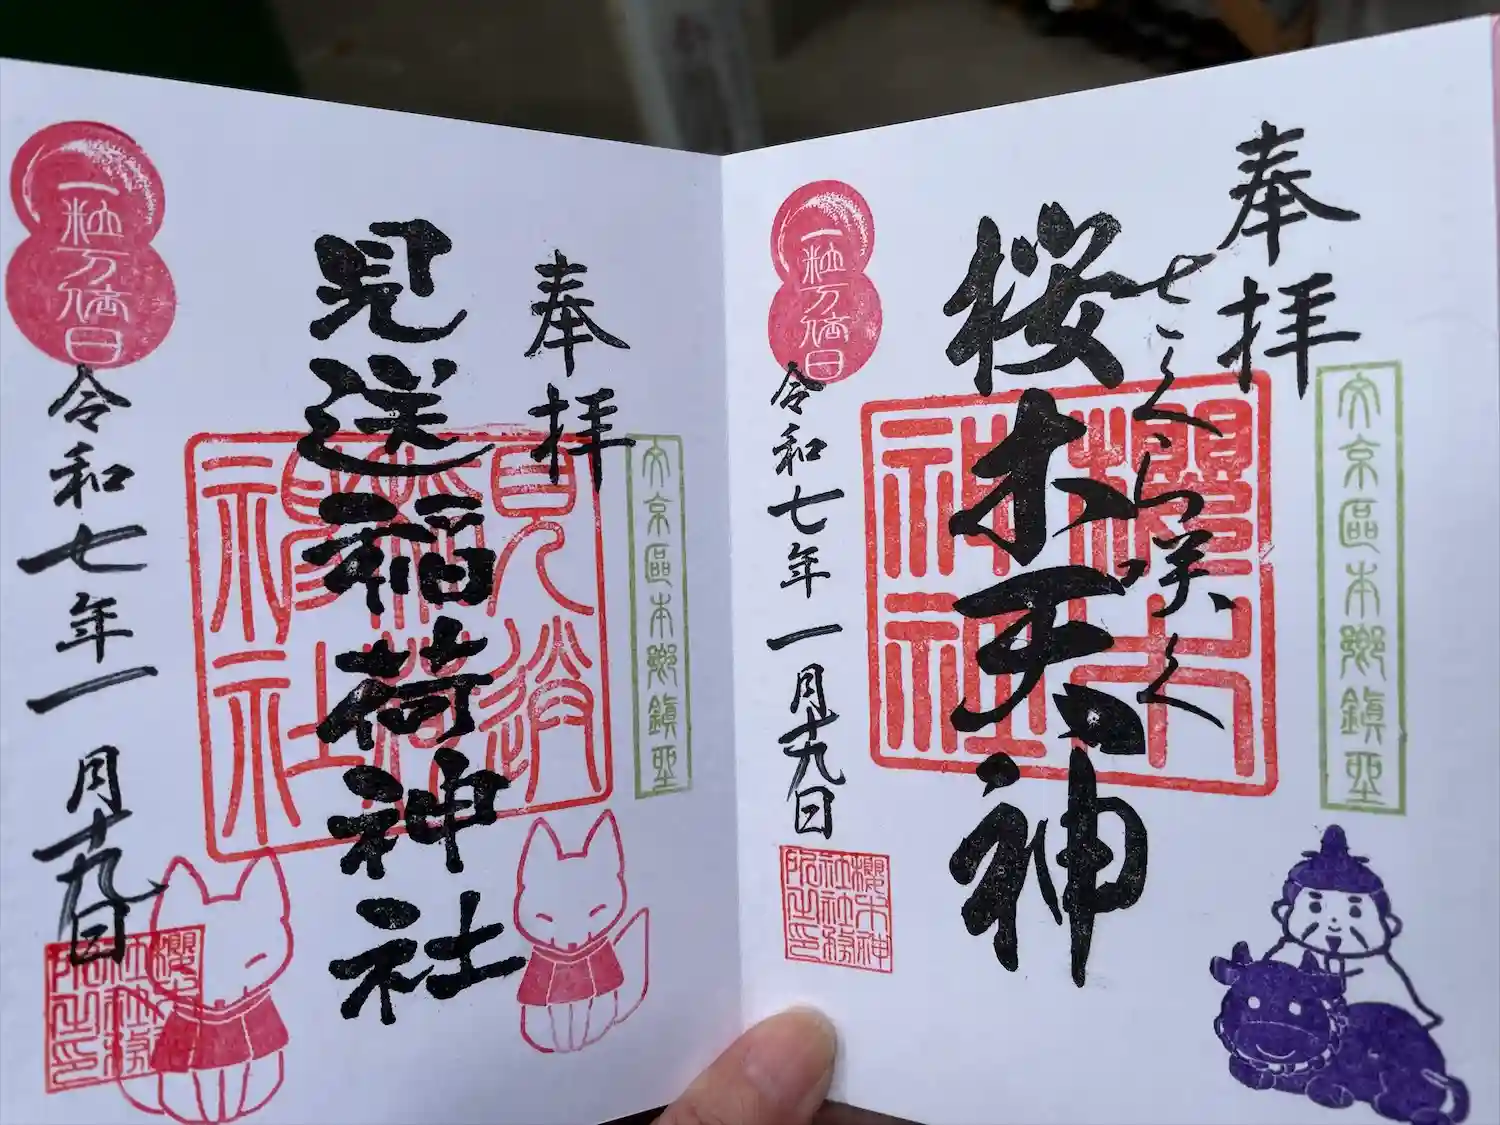 文京區本郷鎮聖
奉拝
七こく、ら咲く
桜木天神
櫻木
神社
一粒万倍日
令和七年一月十九日
櫻木神
社社務
所之印
文京區本郷鎮聖
奉拝
見送稲荷神社
見送
稲荷
神社
一粒万倍日
令和七年一月十九日
櫻木神
社社務
所之印